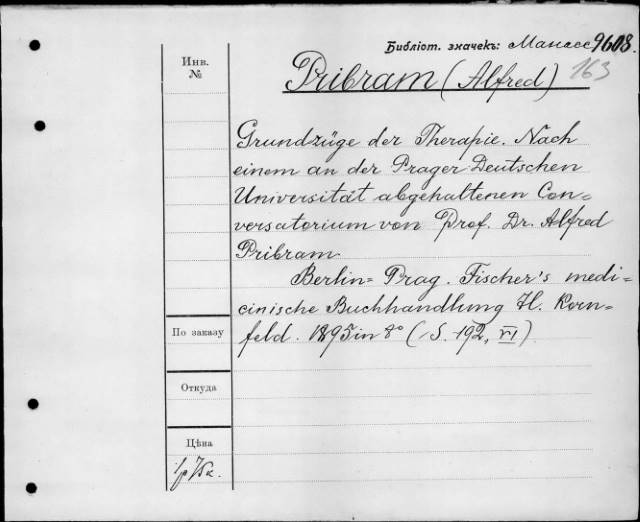 Библіот. значекъ: Манасс 9608.
163
Инв.
№
Pribram (Alfred)
Grundzüge der Therapie. Nach
einem an der Prager Deutschen
Universität abgehaltenen Con=
versatorium von Prof. Dr. Alfred
Pribram
Berlin=Prag. Fischer's medi=
cinische Buchhandlung H. Korn=
feld. 1895 in 8° (S. 192, VI)
По заказу
Откуда
Цѣна
1р 75к.